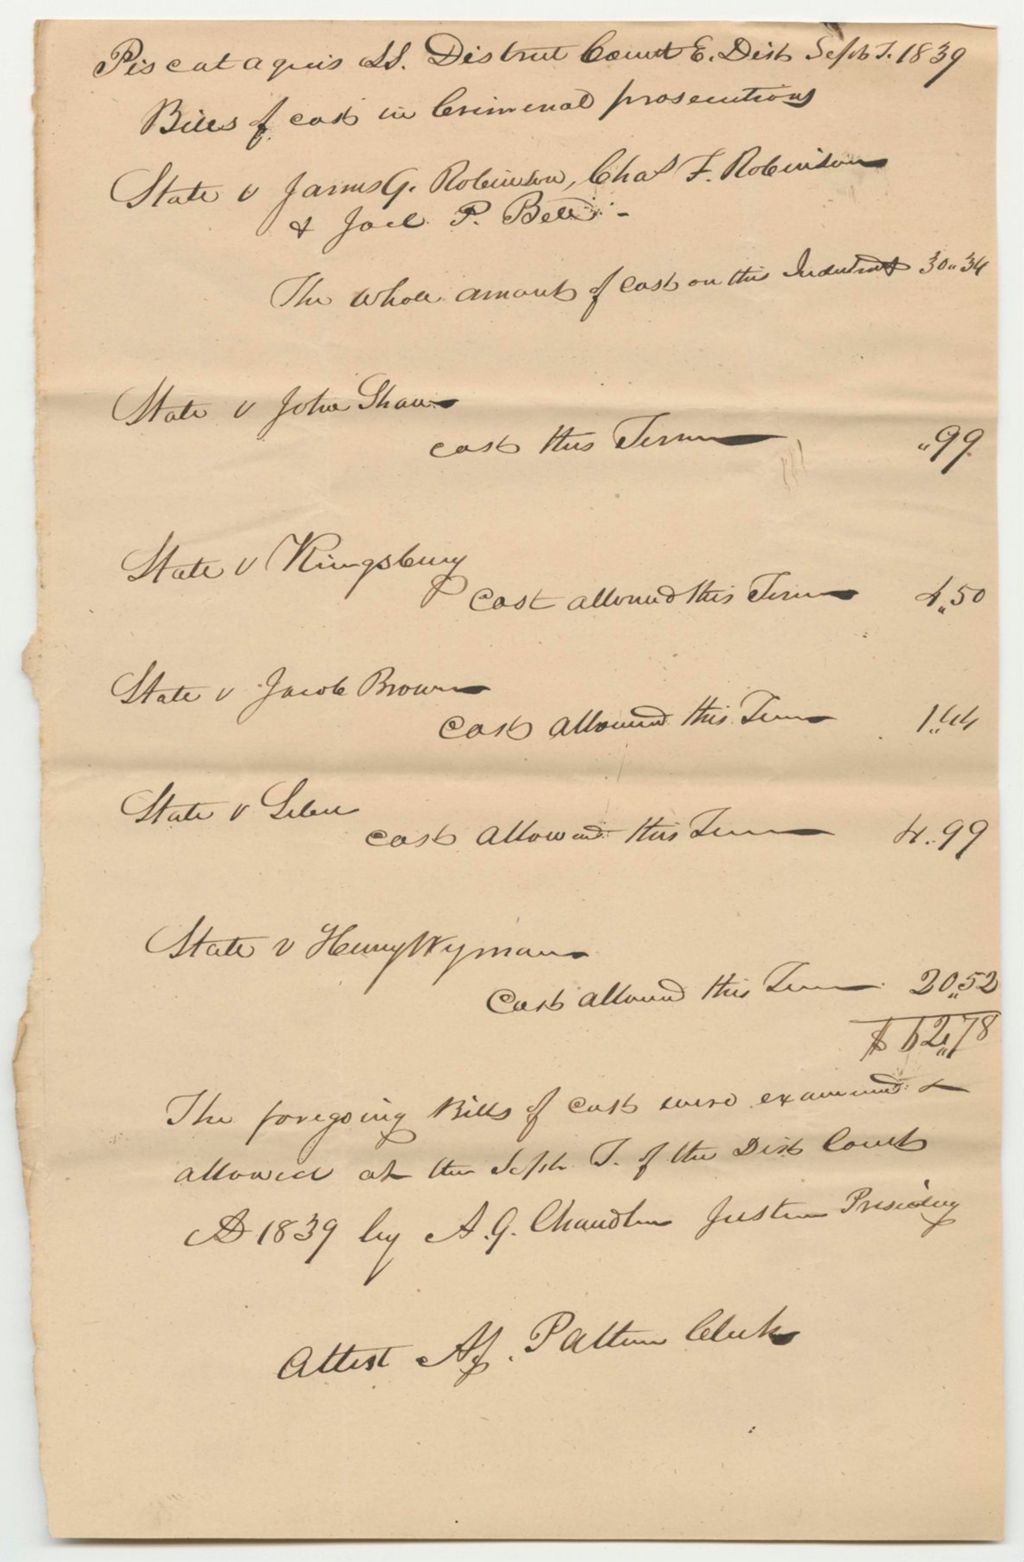 Piscataquis SS. District Court E. Dist Sept T. 1839
Bills of cost in Criminal prosecutions
State v James G. Robinson, Chas F. Robinson
& Joel P. Bell -
The whole amount of cost on this Indictmt 30"34
State v John Shaw
cost this Term "99
State v Kingsbury
Cost allowed this Term 4"50
State v Jacob Brown
Cost allowed this Term 1"44
State v
cost allowed this Term 4.99
State v Henry Wyman
Cost allowed this Term 20"52
$ 62"78
The foregoing Bills of Cost were examined &
allowed at the Sept. T. of the Dist Court
AD 1839 by A. G. Chandler Justice Presiding
Attest Patten Clerk